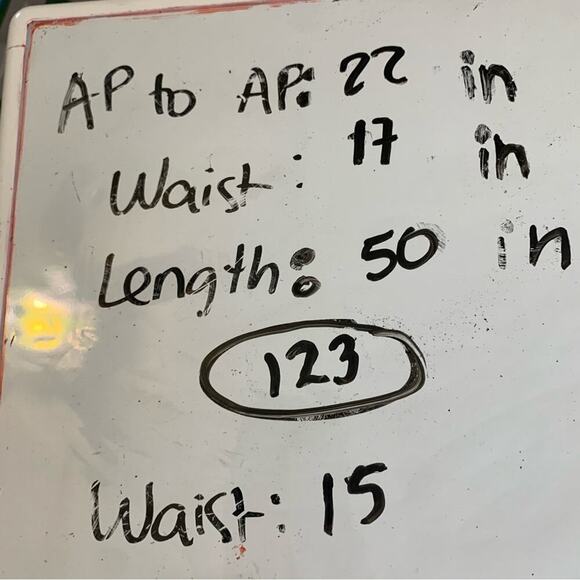 AP to AP: 22 in
Waist: 17 in
Length: 50 in
123
Waist: 15